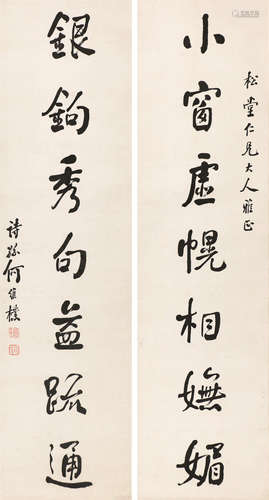 松堂仁兄大人雅正
小窗虚幌相嫵媚
銀鉤秀句益疏通
詩孫何維樸